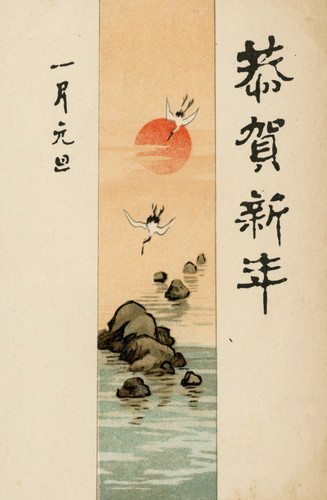 恭賀新年
一月元旦